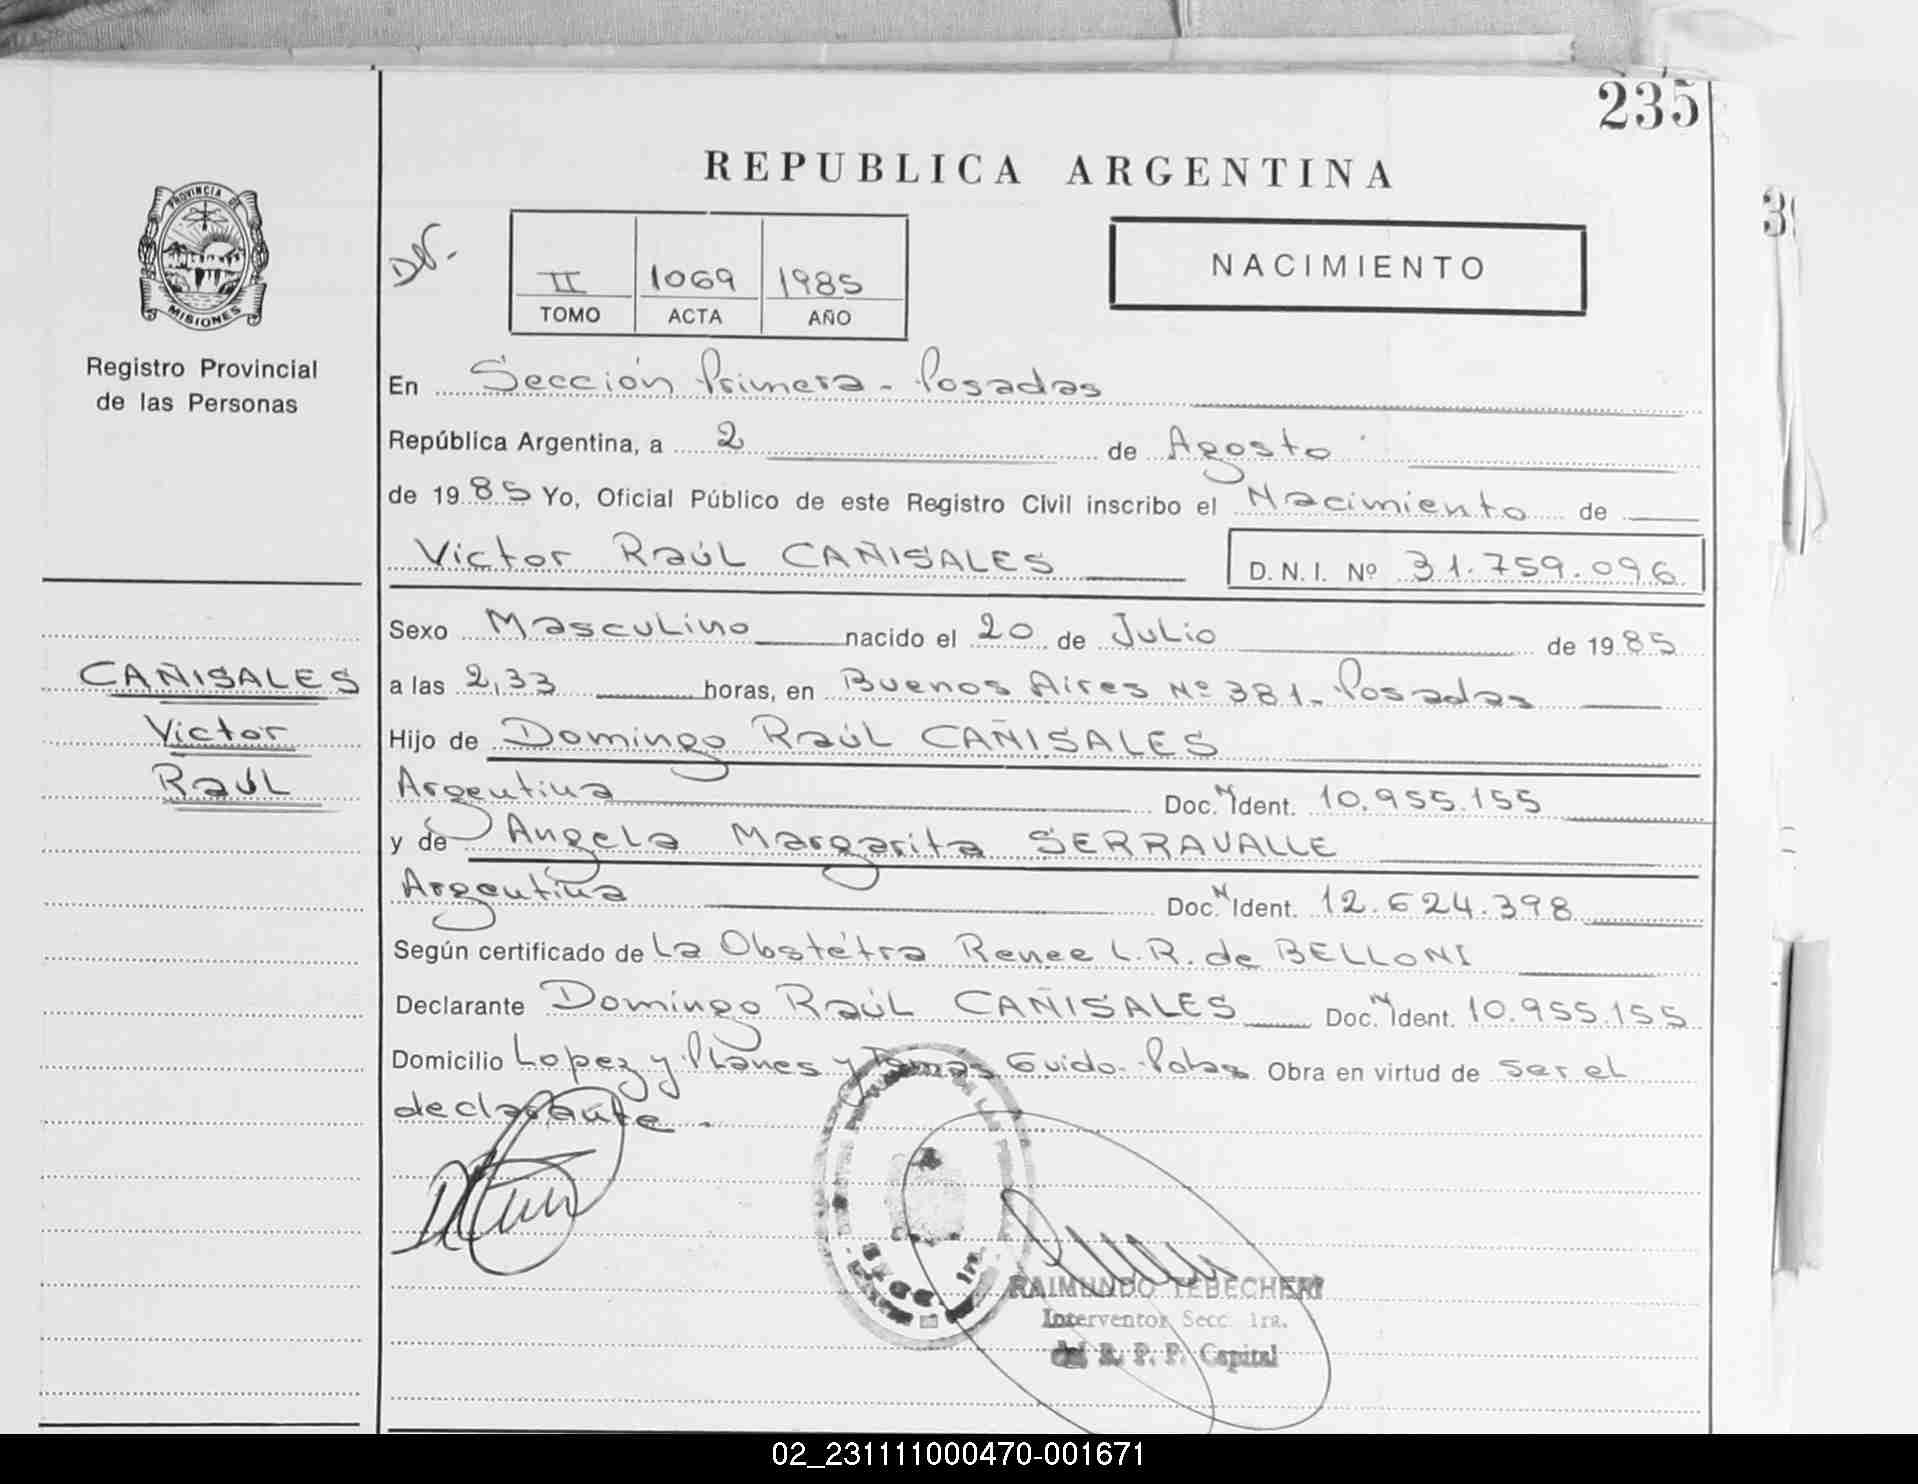 235
REPUBLICA ARGENTINA
PROVINCIA DE
MISIONES
DN.
II 1069 1985
TOMO ACTA AÑO
NACIMIENTO
Registro Provincial
de las Personas
En Sección Primera - Posadas
República Argentina, a 2 de Agosto
de 1985 Yo, Oficial Público de este Registro Civil inscribo el Nacimiento de
Victor Raúl CAÑISALES D. N. I. Nº 31.759.096
Sexo Masculino nacido el 20 de Julio de 1985
CAÑISALES
Victor
Raúl
a las 2,33 horas, en Buenos Aires Nº 381 - Posadas
Hijo de Domingo Raúl CAÑISALES
Argentina Doc. N Ident. 10.955.155
y de Angela Margarita SERRAVALLE
Argentina Doc. N Ident. 12.624.398
Según certificado de La Obstétra Renee L.R. de BELLONI
Declarante Domingo Raúl CAÑISALES Doc. N Ident. 10.955.155
Domicilio Lopez y Planes y Tomas Guido - Pdas Obra en virtud de ser el
declarante.
RAIMUNDO TEBECHERI
Interventor Secc. 1ra.
del R. P. P. Capital
02_231111000470-001671